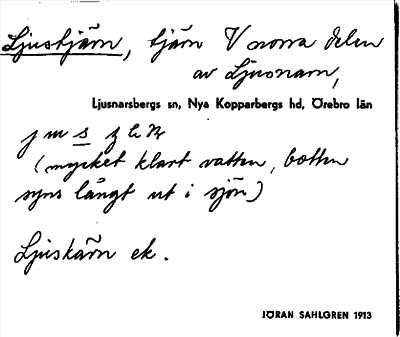 Ljustjärn, tjärn V norra delen
av Ljusnarn,
Ljusnarsbergs sn, Nya Kopparbergs hd, Örebro län
(mycket klart vatten, botten
syns långt ut i sjön)
Ljuskärn ek.
JÖRAN SAHLGREN 1913